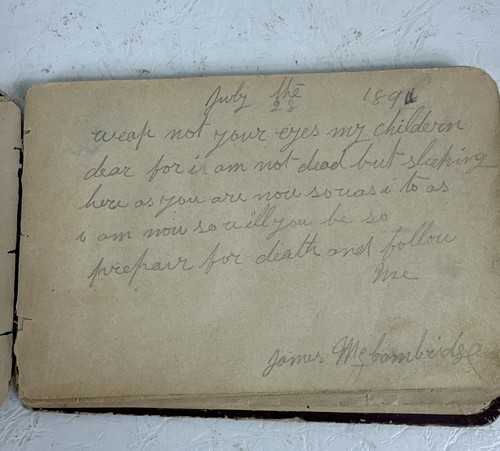 July the 28 1891
weap not your eyes my childern
dear for i am not dead but sleeping
here as you are now so was i to as
i am now so will you be so
prepair for death and follow
me
James McCombridge